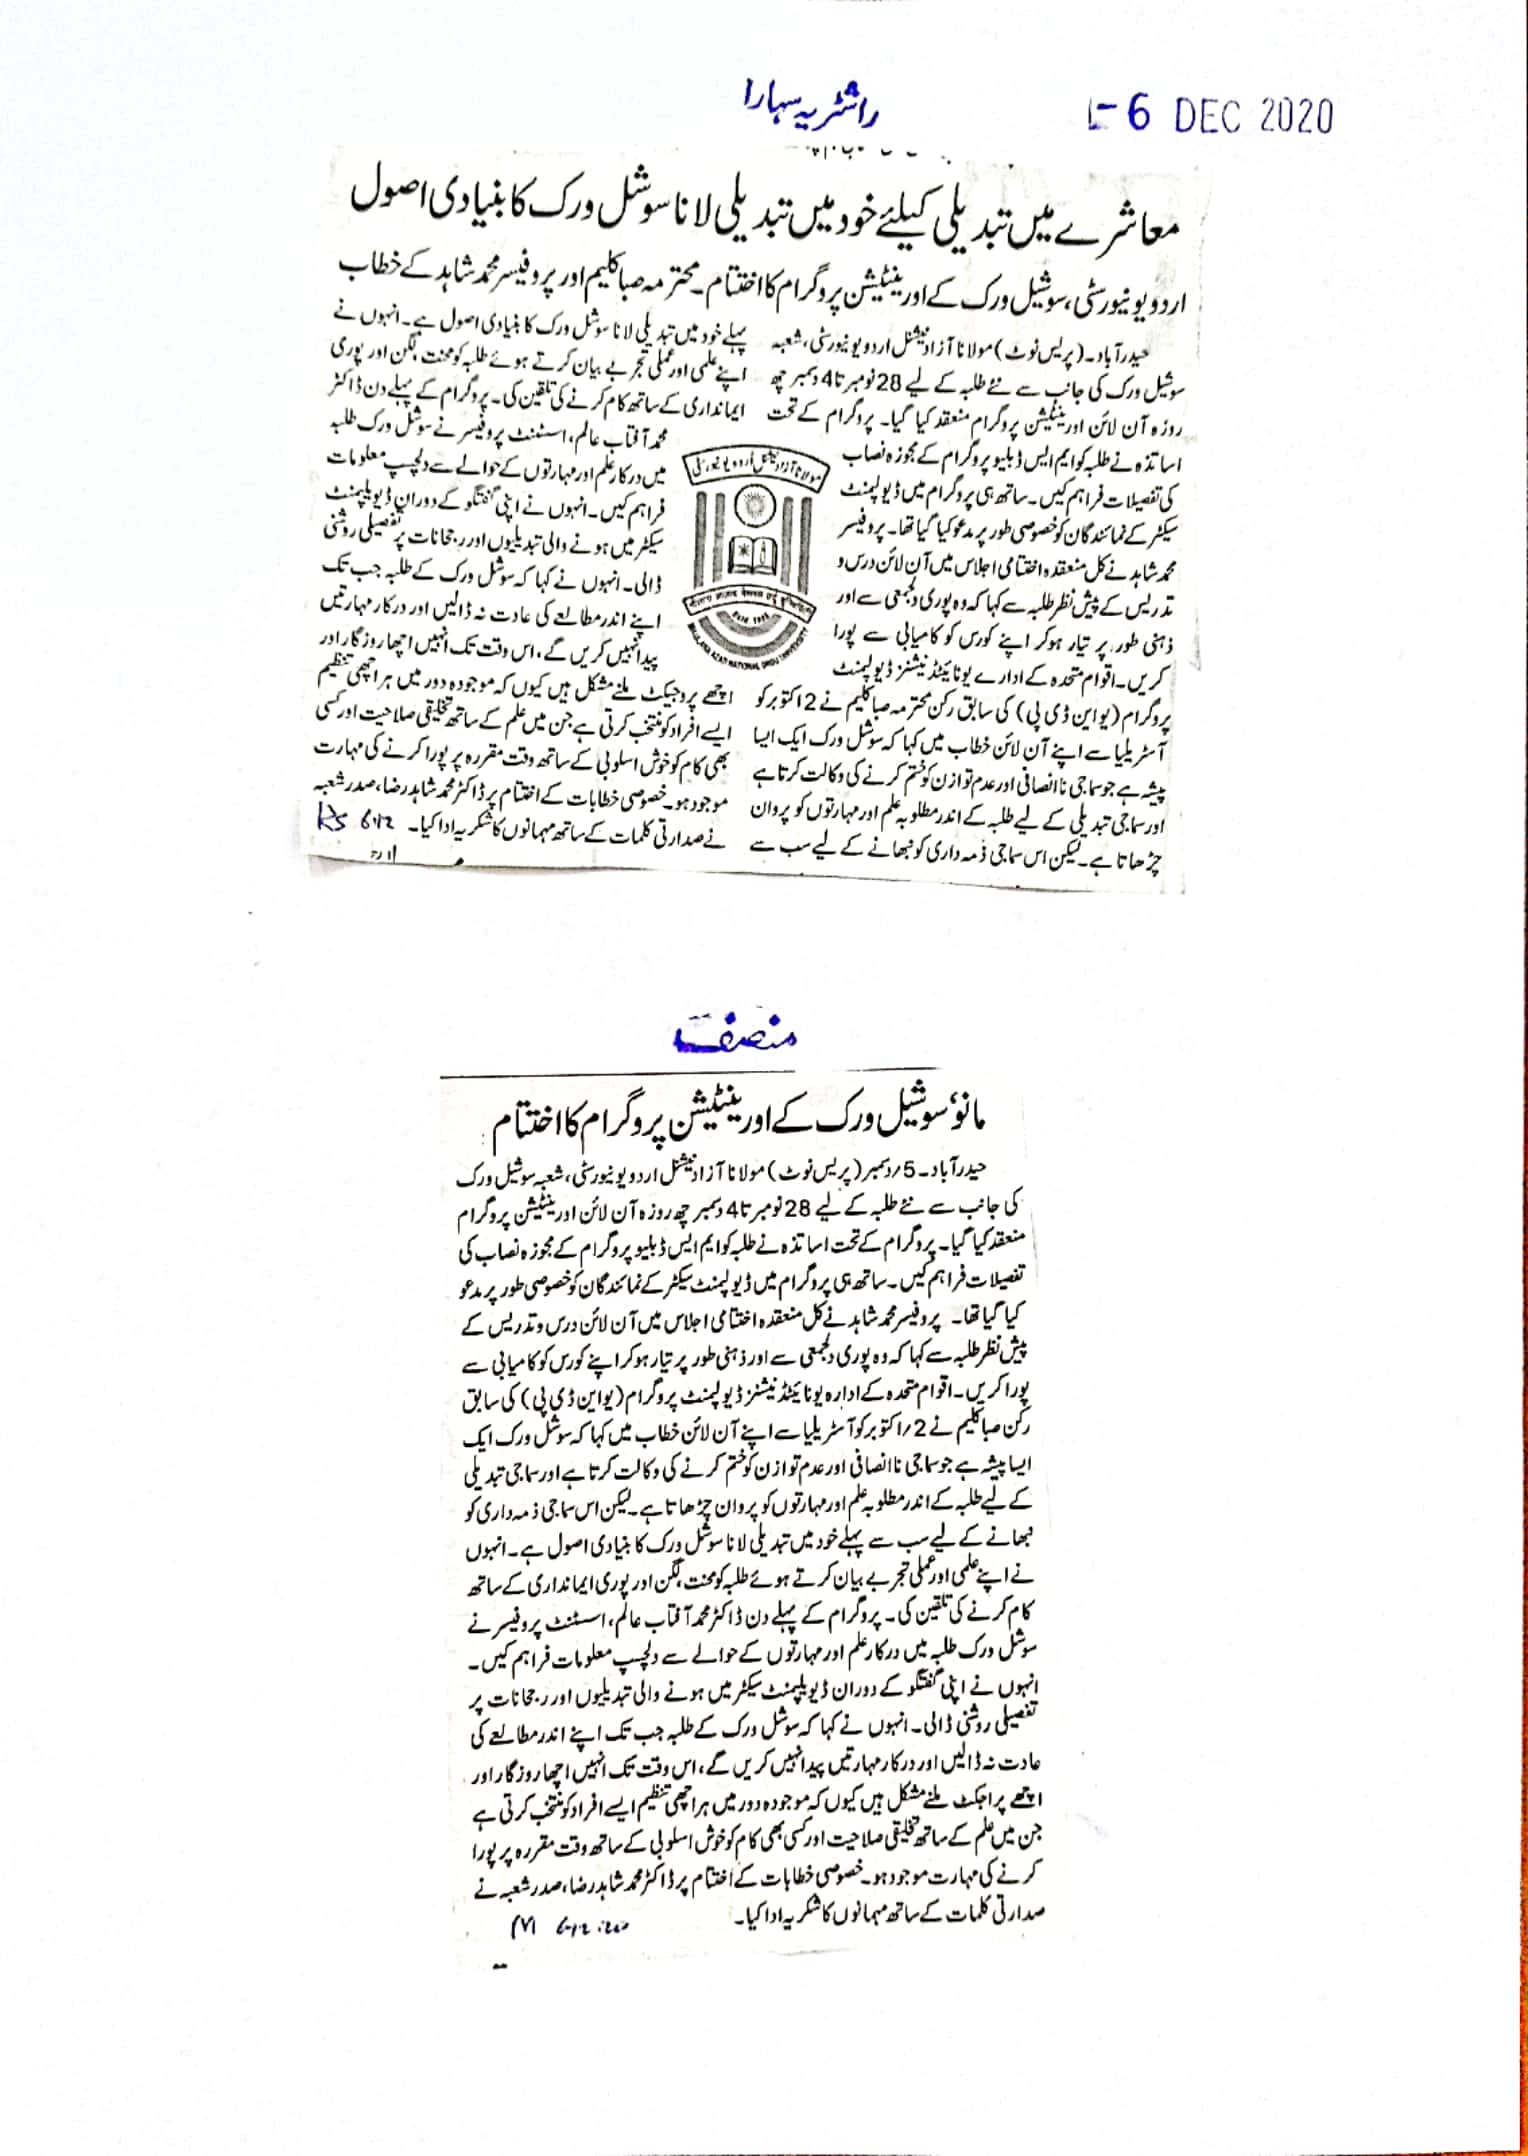 راشٹریہ سہارا
-6 DEC 2020
معاشرے میں تبدیلی کیلئے خود میں تبدیلی لانا سوشل ورک کا بنیادی اصول
اردو یونیورسٹی، سوشیل ورک کے اورینٹیشن پروگرام کا اختتام۔ محترمہ صبا کلیم اور پروفیسر محمد شاہد کے خطاب
حیدرآباد۔ (پریس نوٹ) مولانا آزاد نیشنل اردو یونیورسٹی، شعبہ
سوشیل ورک کی جانب سے نئے طلبہ کے لیے 28 نومبر تا 4 دسمبر چھ
روزہ آن لائن اورینٹیشن پروگرام منعقد کیا گیا۔ پروگرام کے تحت
اساتذہ نے طلبہ کو ایم ایس ڈبلیو پروگرام کے مجوزہ نصاب
کی تفصیلات فراہم کیں۔ ساتھ ہی پروگرام میں ڈیولپمنٹ
سیکٹر کے نمائندگان کو خصوصی طور پر مدعو کیا گیا تھا۔ پروفیسر
محمد شاہد نے کل منعقدہ اختتامی اجلاس میں آن لائن درس و
تدریس کے پیش نظر طلبہ سے کہا کہ وہ پوری دلجمعی سے اور
ذہنی طور پر تیار ہو کر اپنے کورس کو کامیابی سے پورا
کریں۔ اقوام متحدہ کے ادارے یونائیٹڈ نیشنز ڈیولپمنٹ
پروگرام (یو این ڈی پی) کی سابق رکن محترمہ صبا کلیم نے 2 اکتوبر کو
آسٹریلیا سے اپنے آن لائن خطاب میں کہا کہ سوشل ورک ایک ایسا
پیشہ ہے جو سماجی ناانصافی اور عدم توازن کو ختم کرنے کی وکالت کرتا ہے
اور سماجی تبدیلی کے لیے طلبہ کے اندر مطلوبہ علم اور مہارتوں کو پروان
چڑھاتا ہے۔ لیکن اس سماجی ذمہ داری کو نبھانے کے لیے سب سے
پہلے خود میں تبدیلی لانا سوشل ورک کا بنیادی اصول ہے۔ انہوں نے
اپنے علمی اور عملی تجربے بیان کرتے ہوئے طلبہ کو محنت، لگن اور پوری
ایمانداری کے ساتھ کام کرنے کی تلقین کی۔ پروگرام کے پہلے دن ڈاکٹر
محمد آفتاب عالم، اسسٹنٹ پروفیسر نے سوشل ورک طلبہ
میں درکار علم اور مہارتوں کے حوالے سے دلچسپ معلومات
فراہم کیں۔ انہوں نے اپنی گفتگو کے دوران ڈیولپمنٹ
سیکٹر میں ہونے والی تبدیلیوں اور رجحانات پر تفصیلی روشنی
ڈالی۔ انہوں نے کہا کہ سوشل ورک کے طلبہ جب تک
اپنے اندر مطالعے کی عادت نہ ڈالیں اور درکار مہارتیں
پیدا نہیں کریں گے، اس وقت تک انہیں اچھا روزگار اور
اچھے پروجیکٹ ملنے مشکل ہیں کیوں کہ موجودہ دور میں ہر اچھی تنظیم
ایسے افراد کو منتخب کرتی ہے جن میں علم کے ساتھ تخلیقی صلاحیت اور کسی
بھی کام کو خوش اسلوبی کے ساتھ وقت مقررہ پر پورا کرنے کی مہارت
موجود ہو۔ خصوصی خطابات کے اختتام پر ڈاکٹر محمد شاہد رضا، صدر شعبہ
نے صدارتی کلمات کے ساتھ مہمانوں کا شکریہ ادا کیا۔ RS 6.12
مولانا آزاد نیشنل اردو یونیورسٹی
MAULANA AZAD NATIONAL URDU UNIVERSITY
منصف
مانو سوشیل ورک کے اورینٹیشن پروگرام کا اختتام
حیدرآباد۔ 5/ دسمبر (پریس نوٹ) مولانا آزاد نیشنل اردو یونیورسٹی، شعبہ سوشیل ورک
کی جانب سے نئے طلبہ کے لیے 28 نومبر تا 4 دسمبر چھ روزہ آن لائن اورینٹیشن پروگرام
منعقد کیا گیا۔ پروگرام کے تحت اساتذہ نے طلبہ کو ایم ایس ڈبلیو پروگرام کے مجوزہ نصاب کی
تفصیلات فراہم کیں۔ ساتھ ہی پروگرام میں ڈیولپمنٹ سیکٹر کے نمائندگان کو خصوصی طور پر مدعو
کیا گیا تھا۔ پروفیسر محمد شاہد نے کل منعقدہ اختتامی اجلاس میں آن لائن درس و تدریس کے
پیش نظر طلبہ سے کہا کہ وہ پوری دلجمعی سے اور ذہنی طور پر تیار ہو کر اپنے کورس کو کامیابی سے
پورا کریں۔ اقوام متحدہ کے ادارہ یونائیٹڈ نیشنز ڈیولپمنٹ پروگرام (یو این ڈی پی) کی سابق
رکن صبا کلیم نے 2/ اکتوبر کو آسٹریلیا سے اپنے آن لائن خطاب میں کہا کہ سوشل ورک ایک
ایسا پیشہ ہے جو سماجی ناانصافی اور عدم توازن کو ختم کرنے کی وکالت کرتا ہے اور سماجی تبدیلی
کے لیے طلبہ کے اندر مطلوبہ علم اور مہارتوں کو پروان چڑھاتا ہے۔ لیکن اس سماجی ذمہ داری کو
نبھانے کے لیے سب سے پہلے خود میں تبدیلی لانا سوشل ورک کا بنیادی اصول ہے۔ انہوں
نے اپنے علمی اور عملی تجربے بیان کرتے ہوئے طلبہ کو محنت، لگن اور پوری ایمانداری کے ساتھ
کام کرنے کی تلقین کی۔ پروگرام کے پہلے دن ڈاکٹر محمد آفتاب عالم، اسسٹنٹ پروفیسر نے
سوشل ورک طلبہ میں درکار علم اور مہارتوں کے حوالے سے دلچسپ معلومات فراہم کیں۔
انہوں نے اپنی گفتگو کے دوران ڈیولپمنٹ سیکٹر میں ہونے والی تبدیلیوں اور رجحانات پر
تفصیلی روشنی ڈالی۔ انہوں نے کہا کہ سوشل ورک کے طلبہ جب تک اپنے اندر مطالعے کی
عادت نہ ڈالیں اور درکار مہارتیں پیدا نہیں کریں گے، اس وقت تک انہیں اچھا روزگار اور
اچھے پراجکٹ ملنے مشکل ہیں کیوں کہ موجودہ دور میں ہر اچھی تنظیم ایسے افراد کو منتخب کرتی ہے
جن میں علم کے ساتھ تخلیقی صلاحیت اور کسی بھی کام کو خوش اسلوبی کے ساتھ وقت مقررہ پر پورا
کرنے کی مہارت موجود ہو۔ خصوصی خطابات کے اختتام پر ڈاکٹر محمد شاہد رضا، صدر شعبہ نے
صدارتی کلمات کے ساتھ مہمانوں کا شکریہ ادا کیا۔